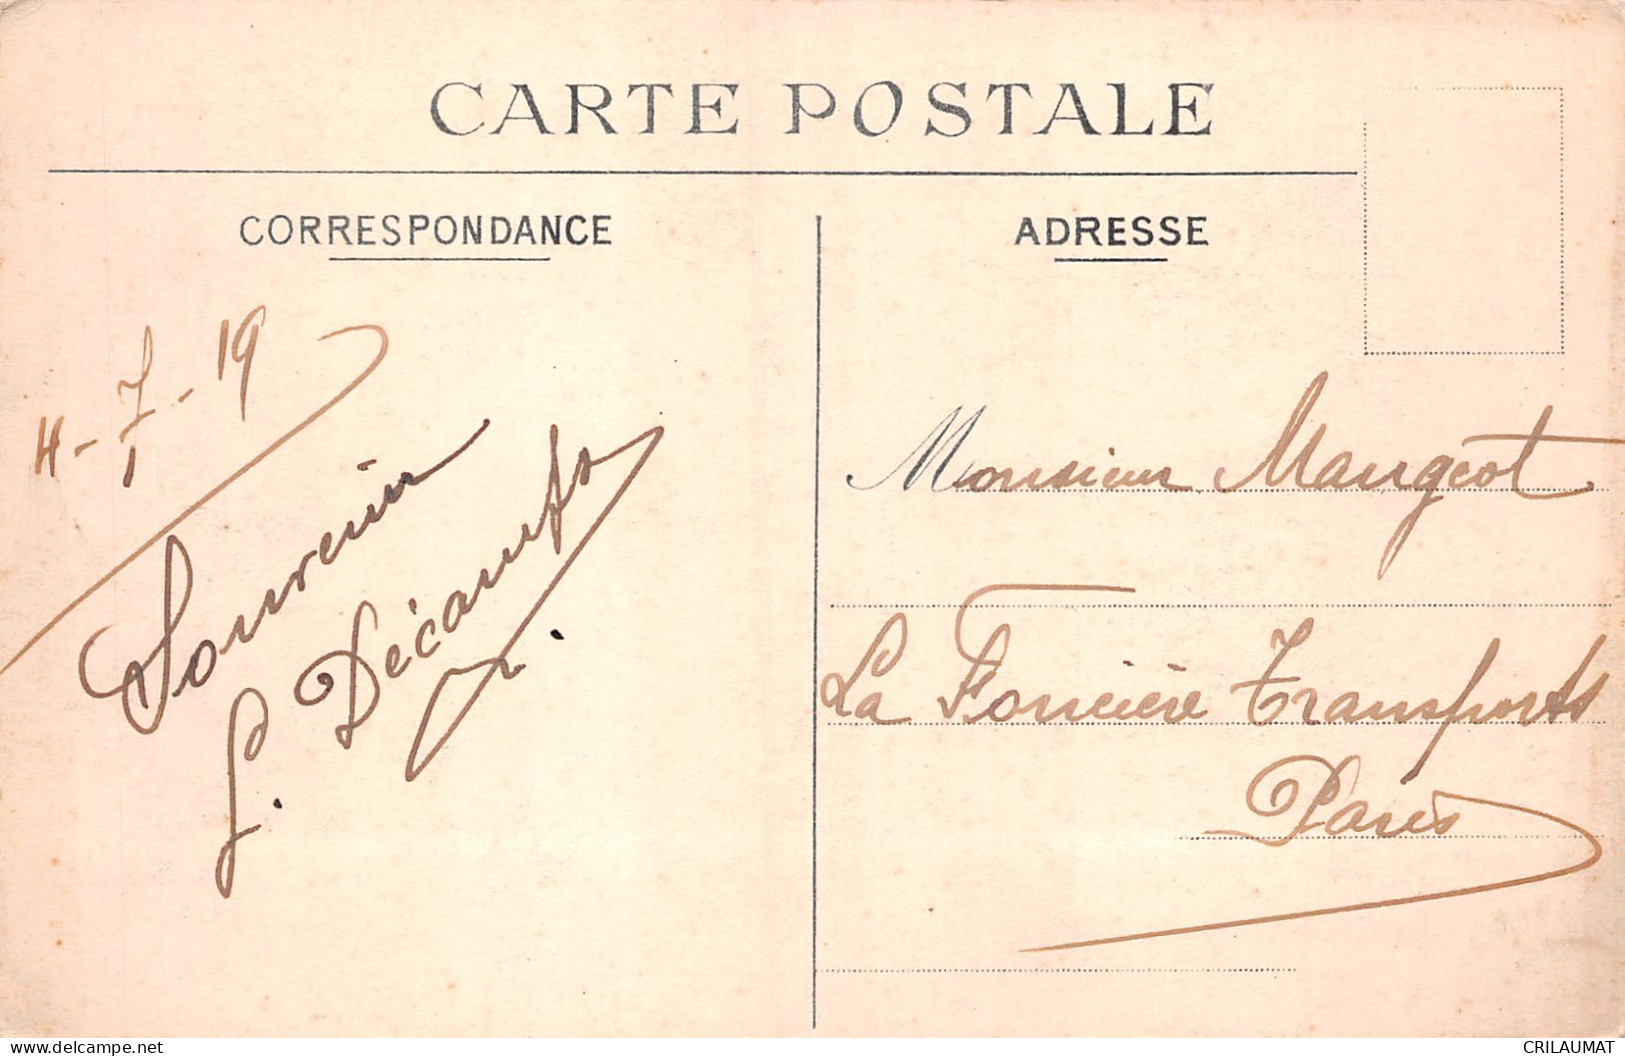 CARTE POSTALE
CORRESPONDANCE
4-7-19
Souvenir
L. Décamps
ADRESSE
Monsieur Maugeot
La Foncière Transports
Paris
www.delcampe.net
CRILAUMAT